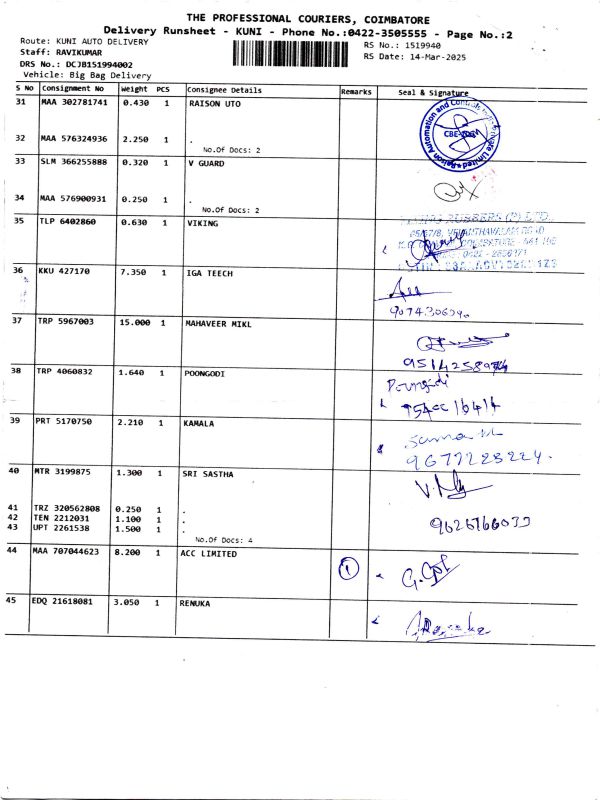 THE PROFESSIONAL COURIERS, COIMBATORE
Delivery Runsheet - KUNI - Phone No.:0422-3505555 - Page No.:2
Route: KUNI AUTO DELIVERY
RS No.: 1519940
Staff: RAVIKUMAR
RS Date: 14-Mar-2025
DRS No.: DCJB151994002
Vehicle: Big Bag Delivery
S No Consignment No Weight PCS Consignee Details Remarks Seal & Signature
31 MAA 302781741 0.430 1 RAISON UTO
32 MAA 576324936 2.250 1 .
No.Of Docs: 2
33 SLM 366255888 0.320 1 V GUARD
34 MAA 576900931 0.250 1 .
No.Of Docs: 2
35 TLP 6402860 0.630 1 VIKING
36 KKU 427170 7.350 1 IGA TEECH
37 TRP 5967003 15.000 1 MAHAVEER MIKL
38 TRP 4060832 1.640 1 POONGODI
Poongodi
39 PRT 5170750 2.210 1 KAMALA
9677228224.
40 MTR 3199875 1.300 1 SRI SASTHA
41 TRZ 320562808 0.250 1 .
42 TEN 2212031 1.100 1 .
43 UPT 2261538 1.500 1 .
9626766033
No.Of Docs: 4
44 MAA 707044623 8.200 1 ACC LIMITED 1
45 EDQ 21618081 3.050 1 RENUKA